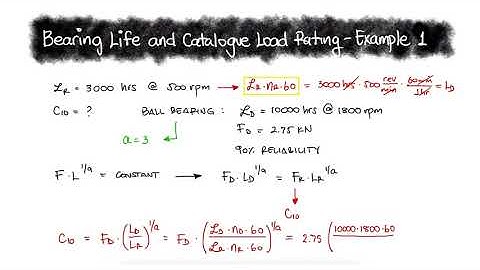 Bearing Life and Catalogue Load Rating - Example 1
ℒR = 3000 hrs @ 500 rpm → ℒR·nR·60 = 3000 hrs · 500 rev/min · 60 min/1 hr = LD
C10 = ? BALL BEARING : ℒD = 10000 hrs @ 1800 rpm
a = 3 FD = 2.75 KN
90% RELIABILITY
F·L^1/a = CONSTANT → FD·LD^1/a = FR·LR^1/a
C10
C10 = FD·(LD/LR)^1/a = FD·(ℒD·nD·60/ℒR·nR·60)^1/a = 2.75 (10000·1800·60